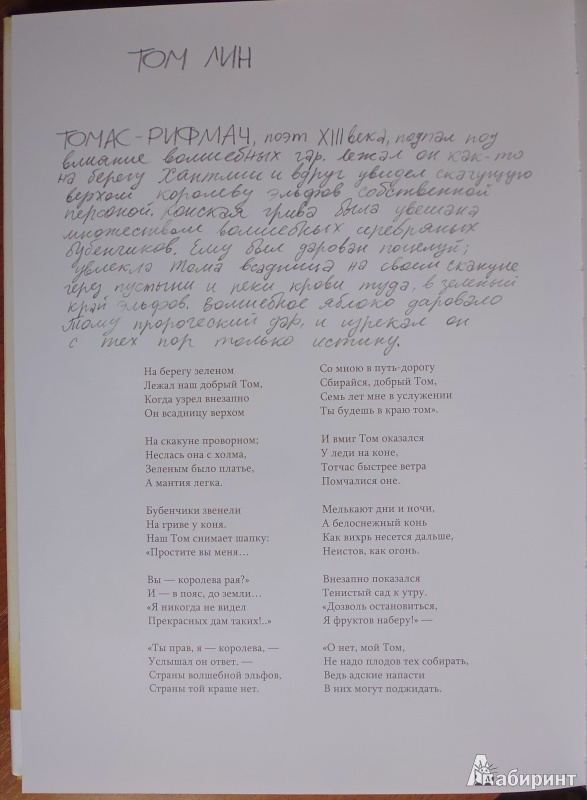 ТОМ ЛИН
ТОМАС-РИФМАЧ, поэт XIII века, попал под
влияние волшебных чар. Лежал он как-то
на берегу Хантлии и вдруг увидел скачущую
верхом королеву эльфов собственной
персоной. Конская грива была увешана
множеством волшебных серебряных
бубенчиков. Ему был дарован поцелуй;
увлекла Тома всадница на своём скакуне
через пустыни и реки крови туда, в зелёный
край эльфов. Волшебное яблоко даровало
Тому пророческий дар, и изрекал он
с тех пор только истину.
На берегу зеленом
Лежал наш добрый Том,
Когда узрел внезапно
Он всадницу верхом
На скакуне проворном;
Неслась она с холма,
Зеленым было платье,
А мантия легка.
Бубенчики звенели
На гриве у коня.
Наш Том снимает шапку:
«Простите вы меня…
Вы — королева рая?»
И — в пояс, до земли…
«Я никогда не видел
Прекрасных дам таких!..»
«Ты прав, я — королева, —
Услышал он ответ. —
Страны волшебной эльфов,
Страны той краше нет.
Со мною в путь-дорогу
Сбирайся, добрый Том,
Семь лет мне в услужении
Ты будешь в краю том».
И вмиг Том оказался
У леди на коне,
Тотчас быстрее ветра
Помчалися оне.
Мелькают дни и ночи,
А белоснежный конь
Как вихрь несется дальше,
Неистов, как огонь.
Внезапно показался
Тенистый сад к утру.
«Дозволь остановиться,
Я фруктов наберу!» —
«О нет, мой Том,
Не надо плодов тех собирать,
Ведь адские напасти
В них могут поджидать.
Лабиринт